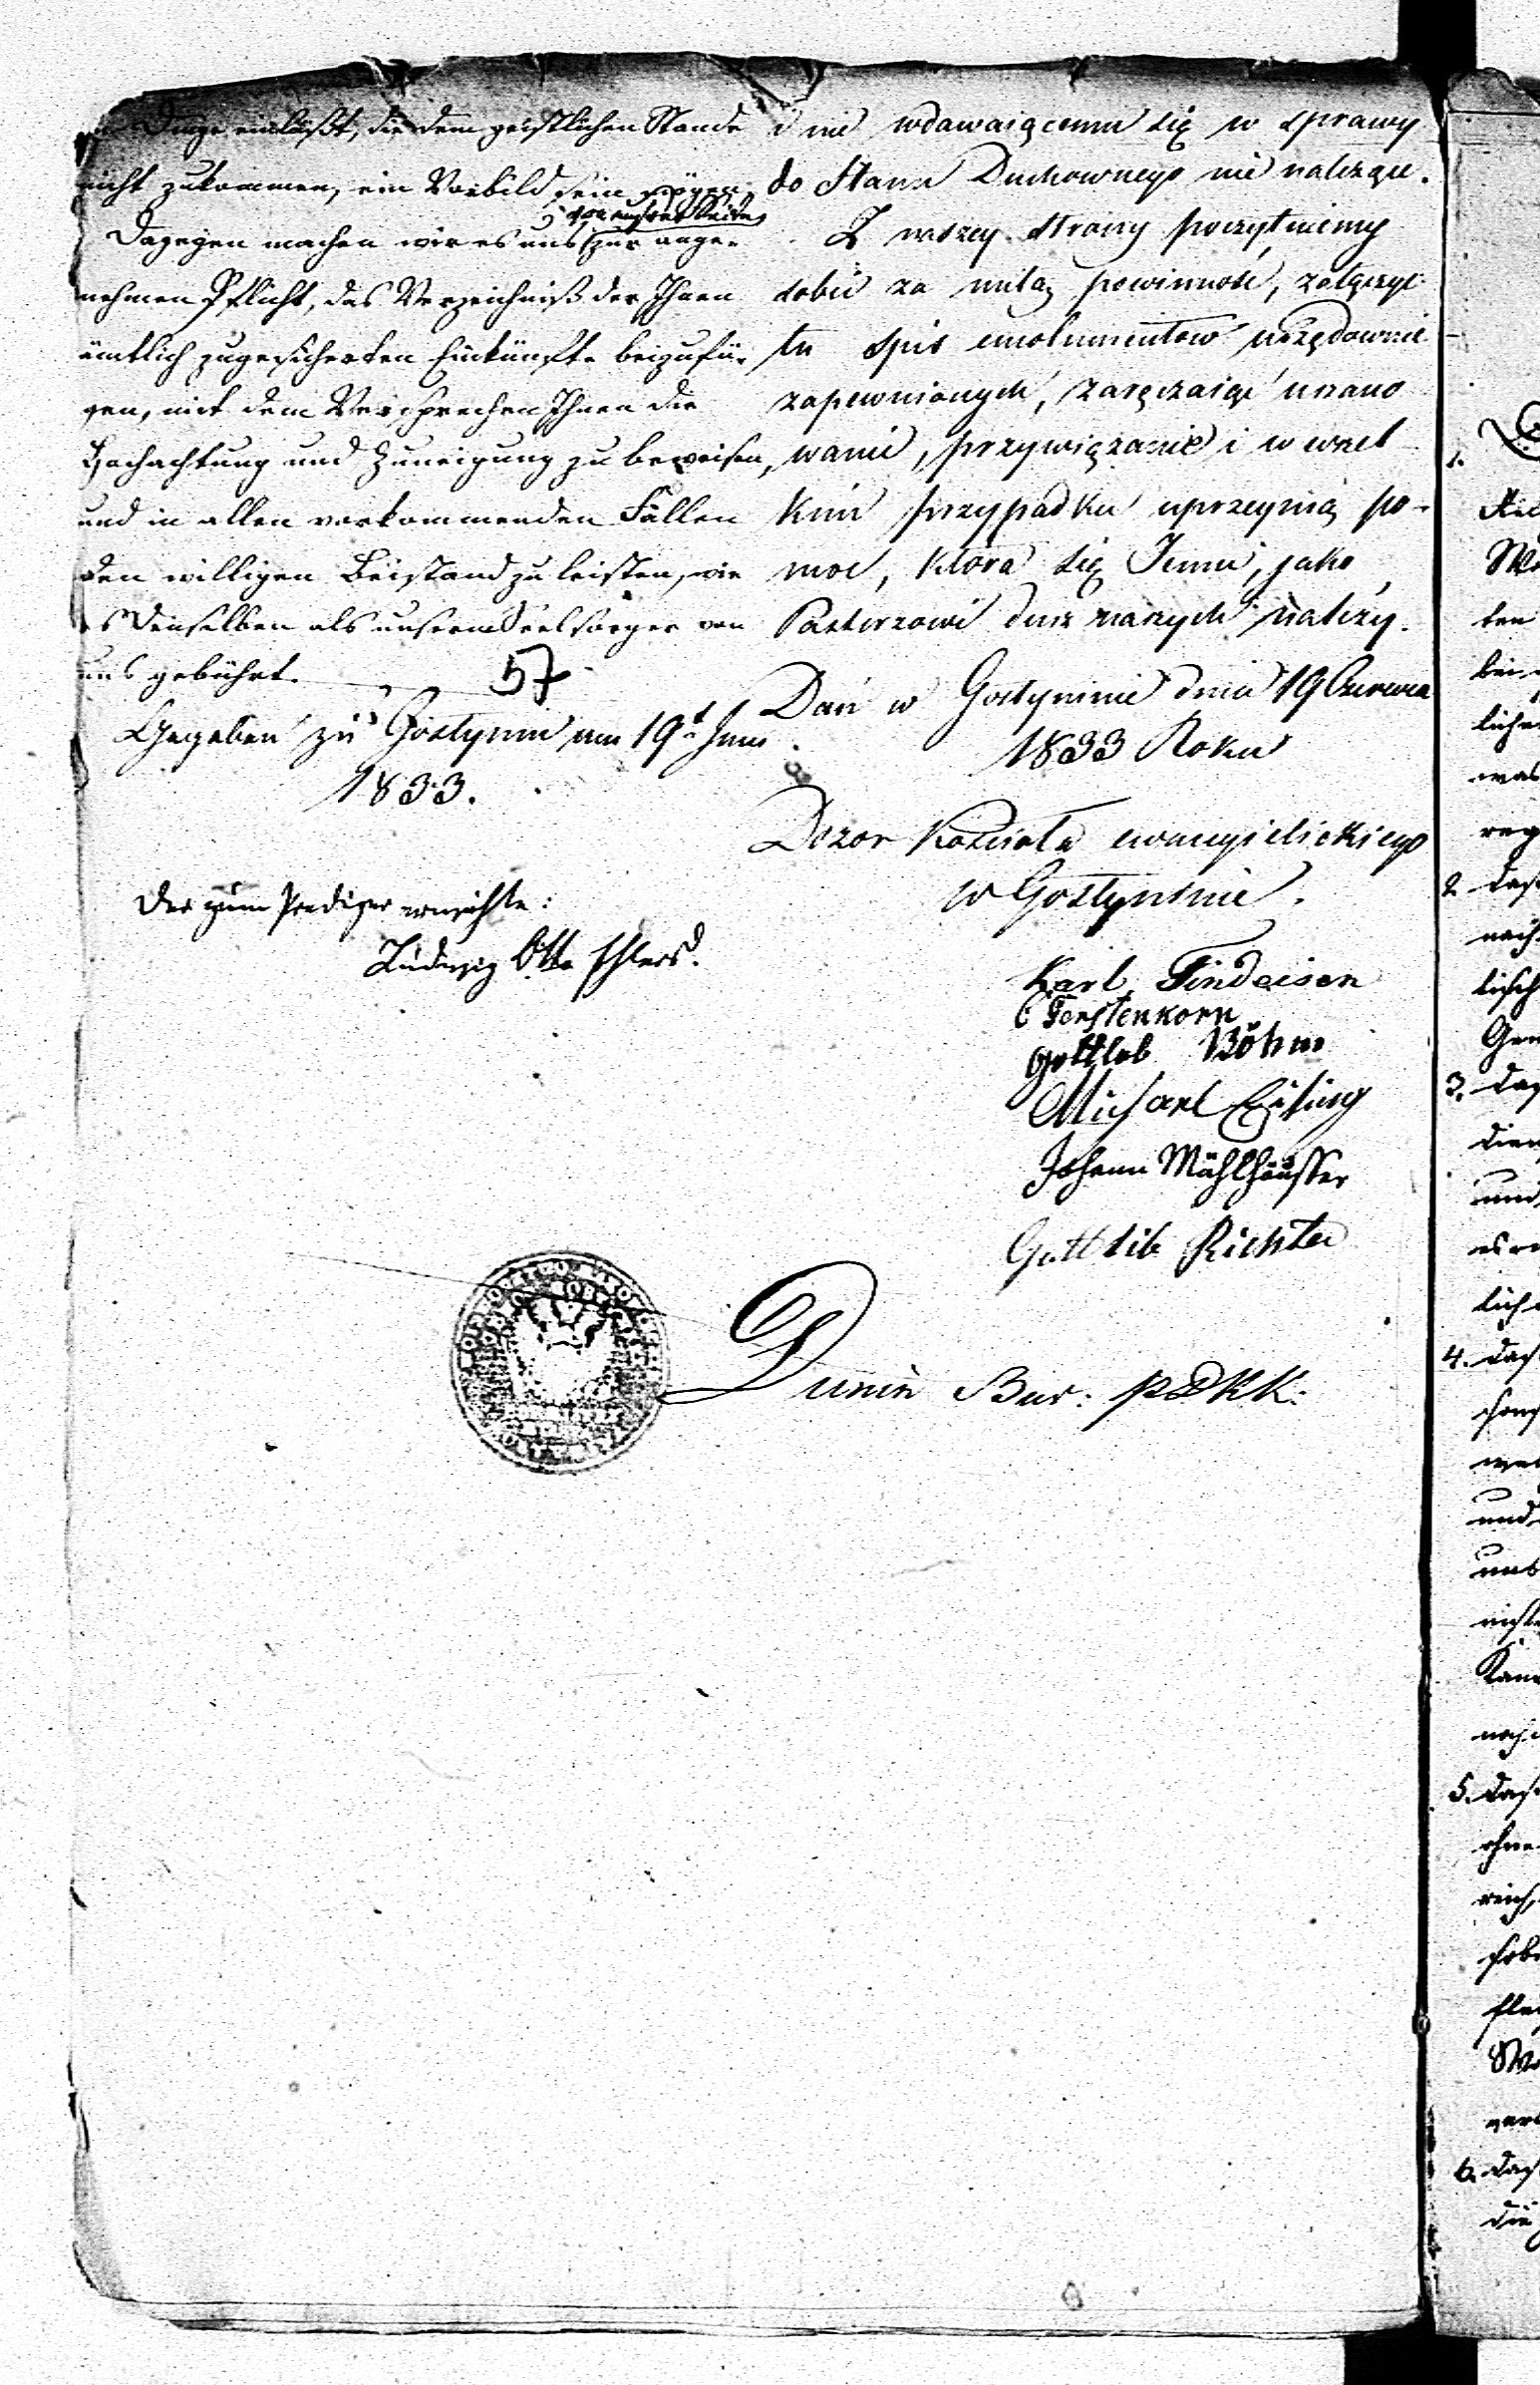 Dinge einläßt, die dem geistlichen Stande
nicht zukommen, ein Vorbild sein mögen.
von unsrer Seite
Dagegen machen wir es uns zur ange-
nehmen Pflicht, das Verzeichniß der Ihnen
ämtlich zugesicherten Einkünfte beizufü-
gen, mit dem Versprechen Ihnen die
Hochachtung und Zuneigung zu beweisen,
und in allen vorkommenden Fällen
den willigen Beistand zu leisten, wie
es Denselben als unserm Seelsorger von
uns gebührt.
57
Gegeben zu Gostynin am 19t Juni
1833.
Der zum Prediger erwählte:
Ludwig Otto Ehlers.
i nie wdawaiącemu się w sprawy
do Stanu Duchownego nie należące.
Z naszey strony poczytuiemy
sobie za miłą powinność, załączyć
tu spis emolumentow urzędownie
zapewnionych, zaręczaiąc uszano
wanie, przywiązanie i w wszel
kim przypadku uprzeymą po-
moc, która się Jemu, jako
Pasterzowi dusz naszych należy.
Dan w Gostyninie dnia 19 Czerwca
1833 Roku
Dozor Kościoła ewangielickiego
w Gostyninie.
Karl Findeisen
C Ferstenkorn
Gottlob Böhm
Michael
Johann Mühlhäusser
Gottlib Richter
Dunin Bur: PDKK:
1.
2. daß
3. daß
und
4. daß
und
5. daß
6. daß
die